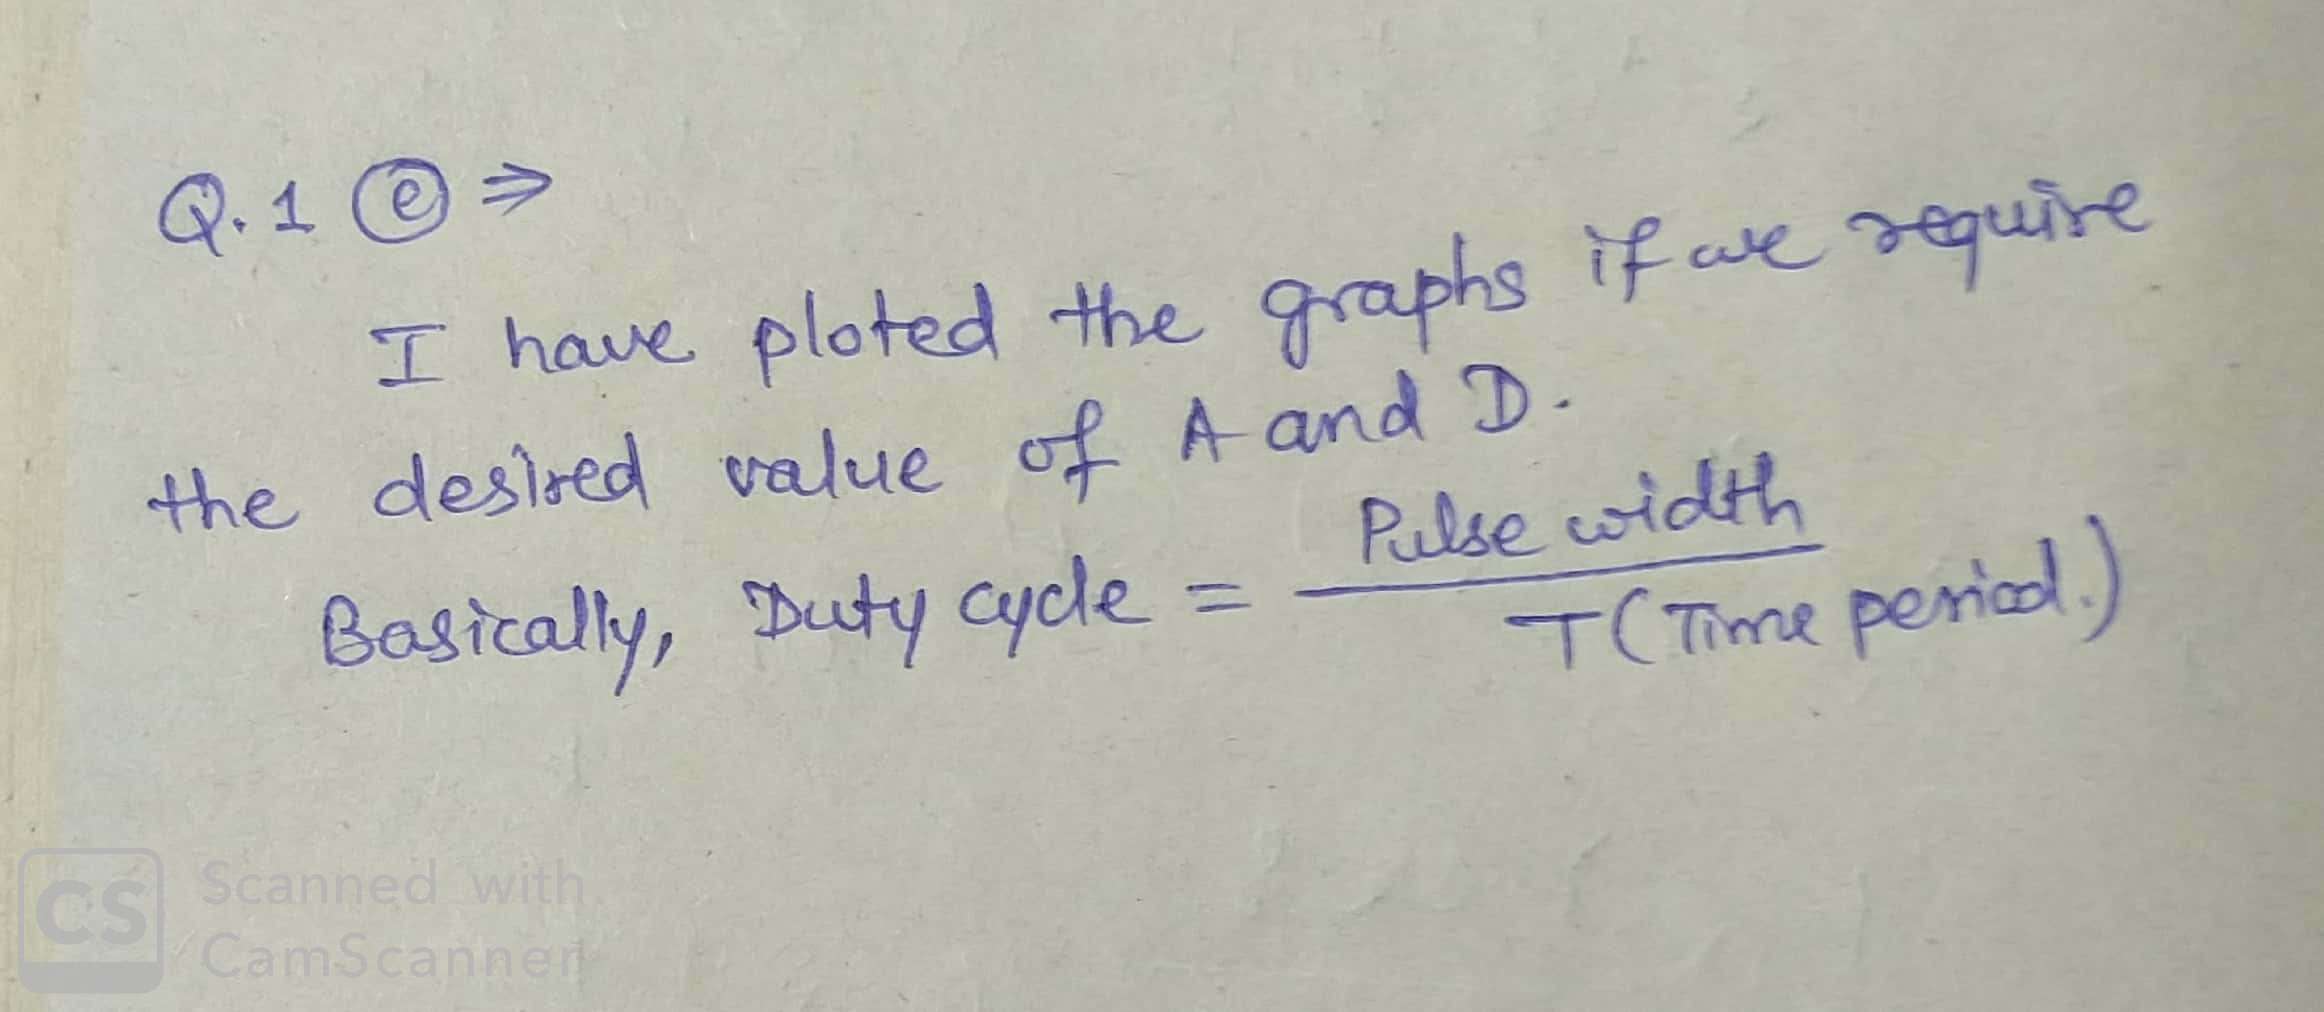 Q. 1 ⓔ ⇒
I have ploted the graphs if we require
the desired value of A and D.
Basically, Duty cycle = Pulse width
T (Time period.)
CS Scanned with
CamScanner